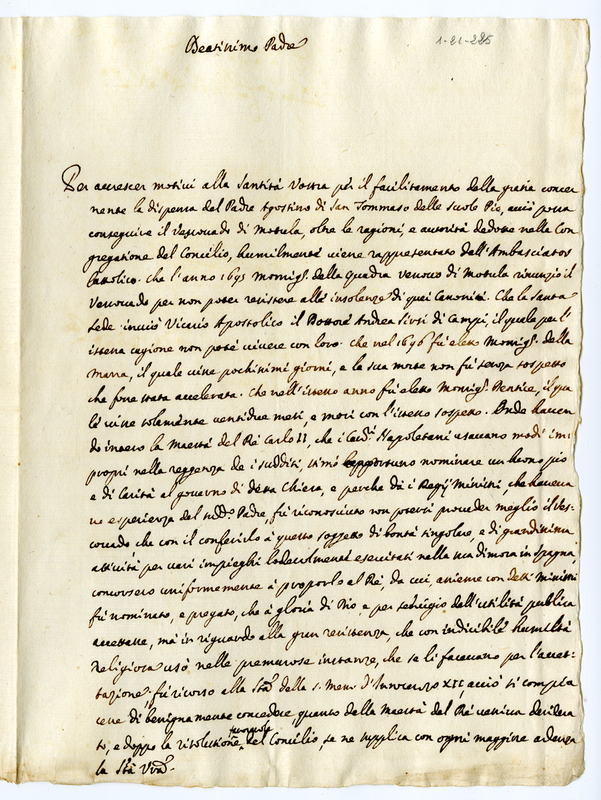 Beatissimo Padre
1-21-225
Per accrescer motivi alla Santità Vostra p̃ il facilitamento della gratia concer
nente la dispensa del Padre Agostino di San Tommaso delle Scuole Pie, acciò possa
conseguire il Vescovado di Motula, oltre le ragioni, e autorità dedotte nella Con
gregatione del Concilio, humilmente viene rappresentato dall'Ambasciator
Cattolico. Che l'anno 1695 Monsig.r della Quadra vescovo di Motula rinunziò il
Vescovado per non poter resistere alle insolenze di quei Canonici. Che la Santa
Sede inviò Vicario Apostolico il Dottore Andrea Sirsi di Campi, il quale per l'
istessa cagione non potè vivere con loro. Che nel 1696 fù eletto Monsig.r della
Marra, il quale visse pochissimi giorni, e la sua morte non fù senza sospetto
che fosse stata accelerata. Che nell'istesso anno fù eletto Monsig.r Pentice, il qua
le visse solamente ventidue mesi, e morì con l'istesso sospetto. Onde haven
do inteso la Maestà del Rè Carlo II, che i Napoletani usavano modi im
propri nella reggenza de i sudditi, stimò nominare un huomo pio
e di Carità al governo di detta Chiesa, e perche da i Regij Ministri, che haveva
no esperienza del sud.o Padre, fù riconosciuto non potersi proveder meglio il Ves
covado che con il conferirlo à questo soggetto di bontà singolare, e di grandissima
attività per vari impieghi lodevolmente esercitati nella sua dimora in Spagna,
concorsero uniformemente à proporlo al Rei, da cui, assieme con detti Ministri
fù nominato, e pregato, che à gloria di Dio, e per servigio dell'utilità publica
accettasse, mà in riguardo alla gran resistenza, che con indicibile humiltà
Religiosa usò nelle premurose instanze, che se li facevano per l'accet-
tazione, fù ricorso alla S.tà della S. Mem. d'Innocenzo XII, acciò si compia
cesse di benignamente concedere quanto dalla Maestà del Rè veniva desidera
to, e doppo la risolutione favorevole del Concilio, se ne supplica con ogni maggiore ardenza
la S.tà V.ra.